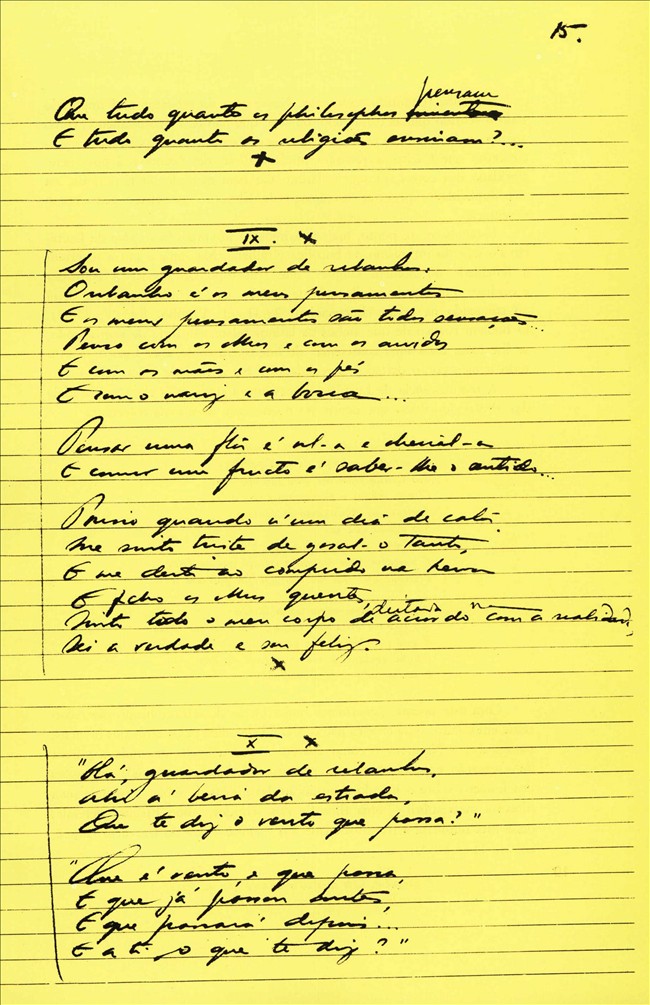 15.
pensam
Que tudo quanto os philosophos inventam
E tudo quanto as religiões ensinam?...
IX.
Sou um guardador de rebanhos.
O rebanho é os meus pensamentos
E os meus pensamentos são todos sensações...
Penso com os olhos e com os ouvidos
E com as mãos e com os pés
E com o nariz e a bocca...
Pensar uma flôr é vel-a e cheiral-a
E comer um fructo é saber-lhe o sentido...
Porisso quando n'um dia de calôr
Me sinto triste de gosal-o tanto,
E me deito ao comprido na herva
E fecho os olhos quentes,
deitado na
Sinto todo o meu corpo de accordo com a realidade,
Sei a verdade e sou feliz.
X
"Olá, guardador de rebanhos,
Ahi á beira da estrada,
Que te diz o vento que passa?"
"Que é vento, e que passa,
E que já passou antes,
E que passará depois...
E a ti o que te diz?"